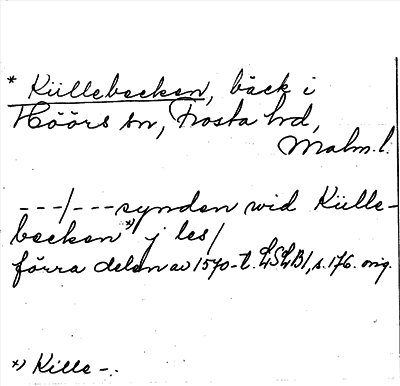 * Küllebecken, bäck i
Höörs sn, Frosta hrd,
Malm.l.
---/---synden wid Külle-
becken *) j les/
förra delen av 1570-t. LSLB1, s. 176. orig.
*) Kille-.